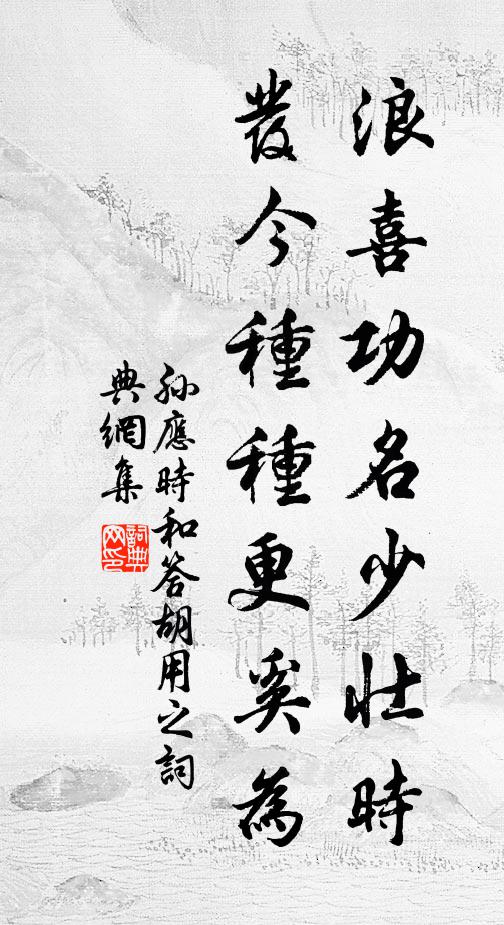 浪喜功名少壯時
發今種種更奚為
孫應時和答胡用之詞
典網集
詞典
网印